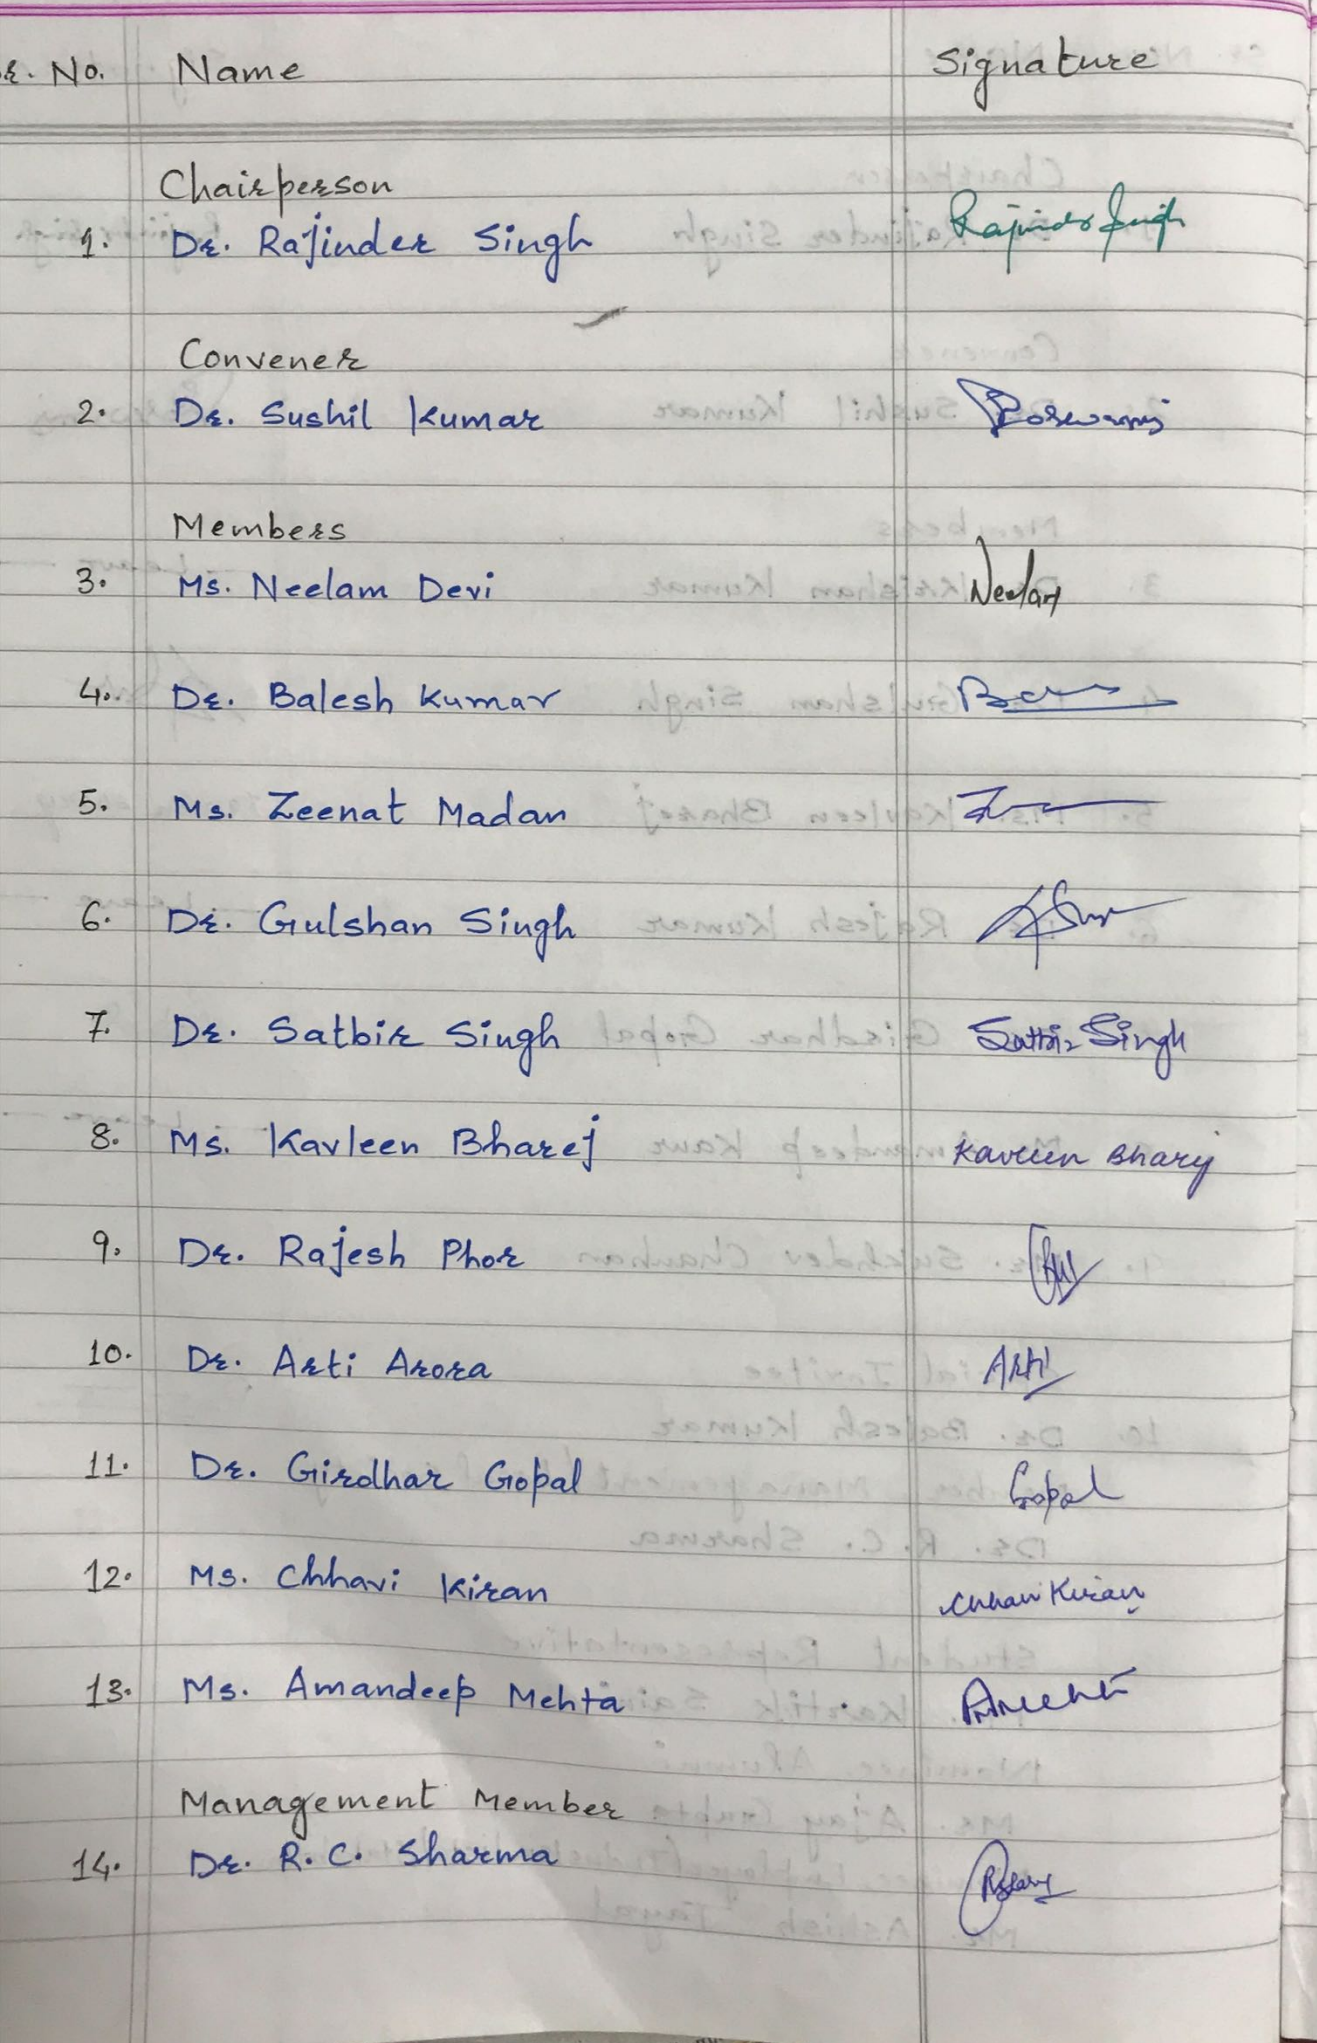 Sr. No. Name Signature
Chairperson
1. Dr. Rajinder Singh Rajinder Singh
Convener
2. Dr. Sushil Kumar
Members
3. Ms. Neelam Devi Neelam
4. Dr. Balesh Kumar
5. Ms. Zeenat Madan
6. Dr. Gulshan Singh
7. Dr. Satbir Singh Satbir Singh
8. Ms. Kavleen Bharej Kavleen Bharej
9. Dr. Rajesh Phor
10. Dr. Arti Arora Arti
11. Dr. Girdhar Gopal Gopal
12. Ms. Chhavi Kiran Chhavi Kiran
13. Ms. Amandeep Mehta
Management Member
14. Dr. R. C. Sharma